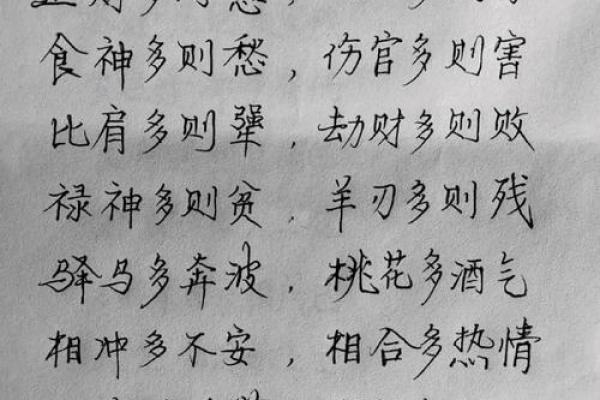 食神多则愁，伤官多则害
比肩多则犟，劫财多则败
禄神多则贫，羊刃多则残
驿马多奔波，桃花多酒气
相冲多不安，相合多热情